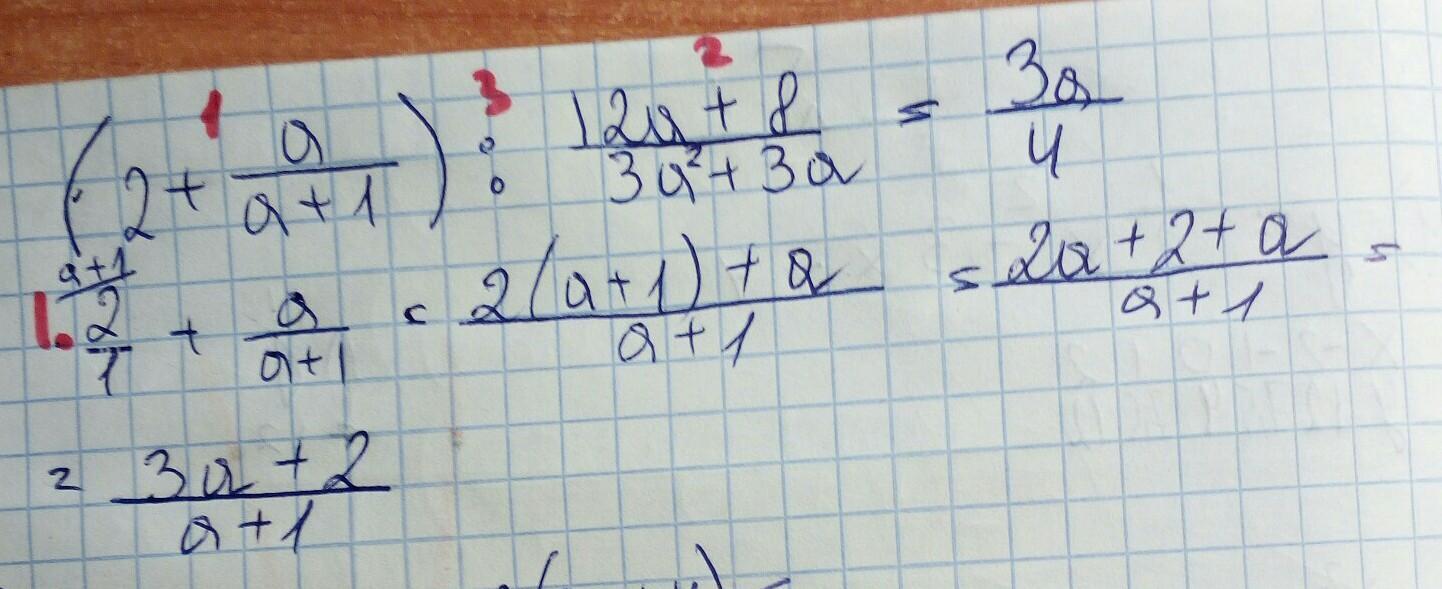 (2 + a/(a+1)) : (12a + 8)/(3a² + 3a) = 3a/4
1 3 2
1. 2/1 (a+1) + a/(a+1) = (2(a+1) + a)/(a+1) = (2a + 2 + a)/(a+1) =
= (3a + 2)/(a+1)